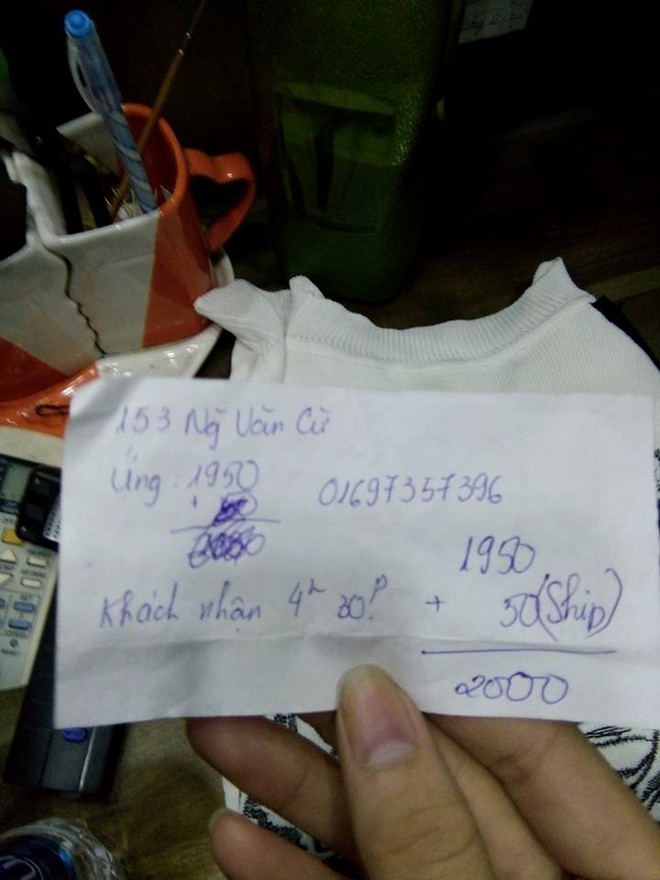 153 Ng̃ Văn Cừ
Ứng : 1950
01697357396
Khách nhận 4h 30p
1950
+ 50 (Ship)
2000